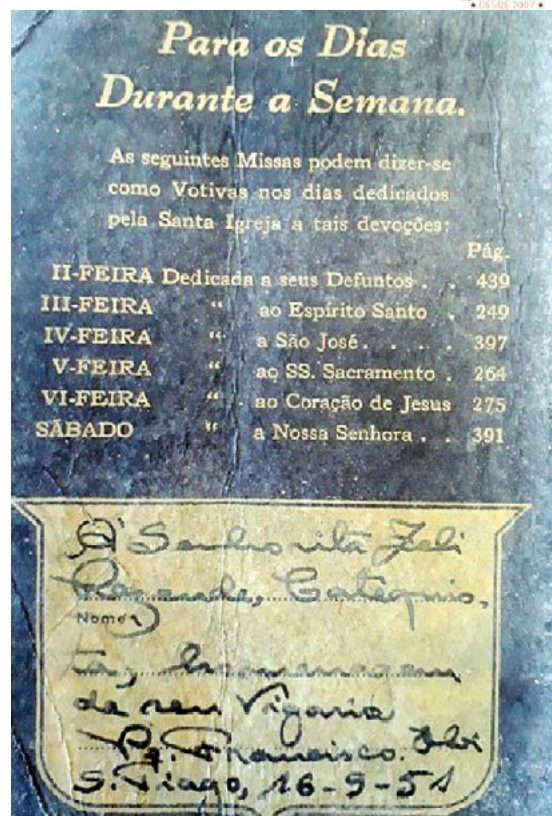 ★ DESDE 2007 ★
Para os Dias
Durante a Semana.
As seguintes Missas podem dizer-se
como Votivas nos dias dedicados
pela Santa Igreja a tais devoções:
Pág.
II-FEIRA Dedicada a seus Defuntos . . 439
III-FEIRA “ ao Espírito Santo . 249
IV-FEIRA “ a São José . . . . 397
V-FEIRA “ ao SS. Sacramento . 264
VI-FEIRA “ ao Coração de Jesus 275
SÁBADO “ a Nossa Senhora . . 391
À Senhorita Zeli
Catequis-
Nome
ta, homenagem
de seu Vigario
Pe. Francisco
S. Tiago, 16-9-51